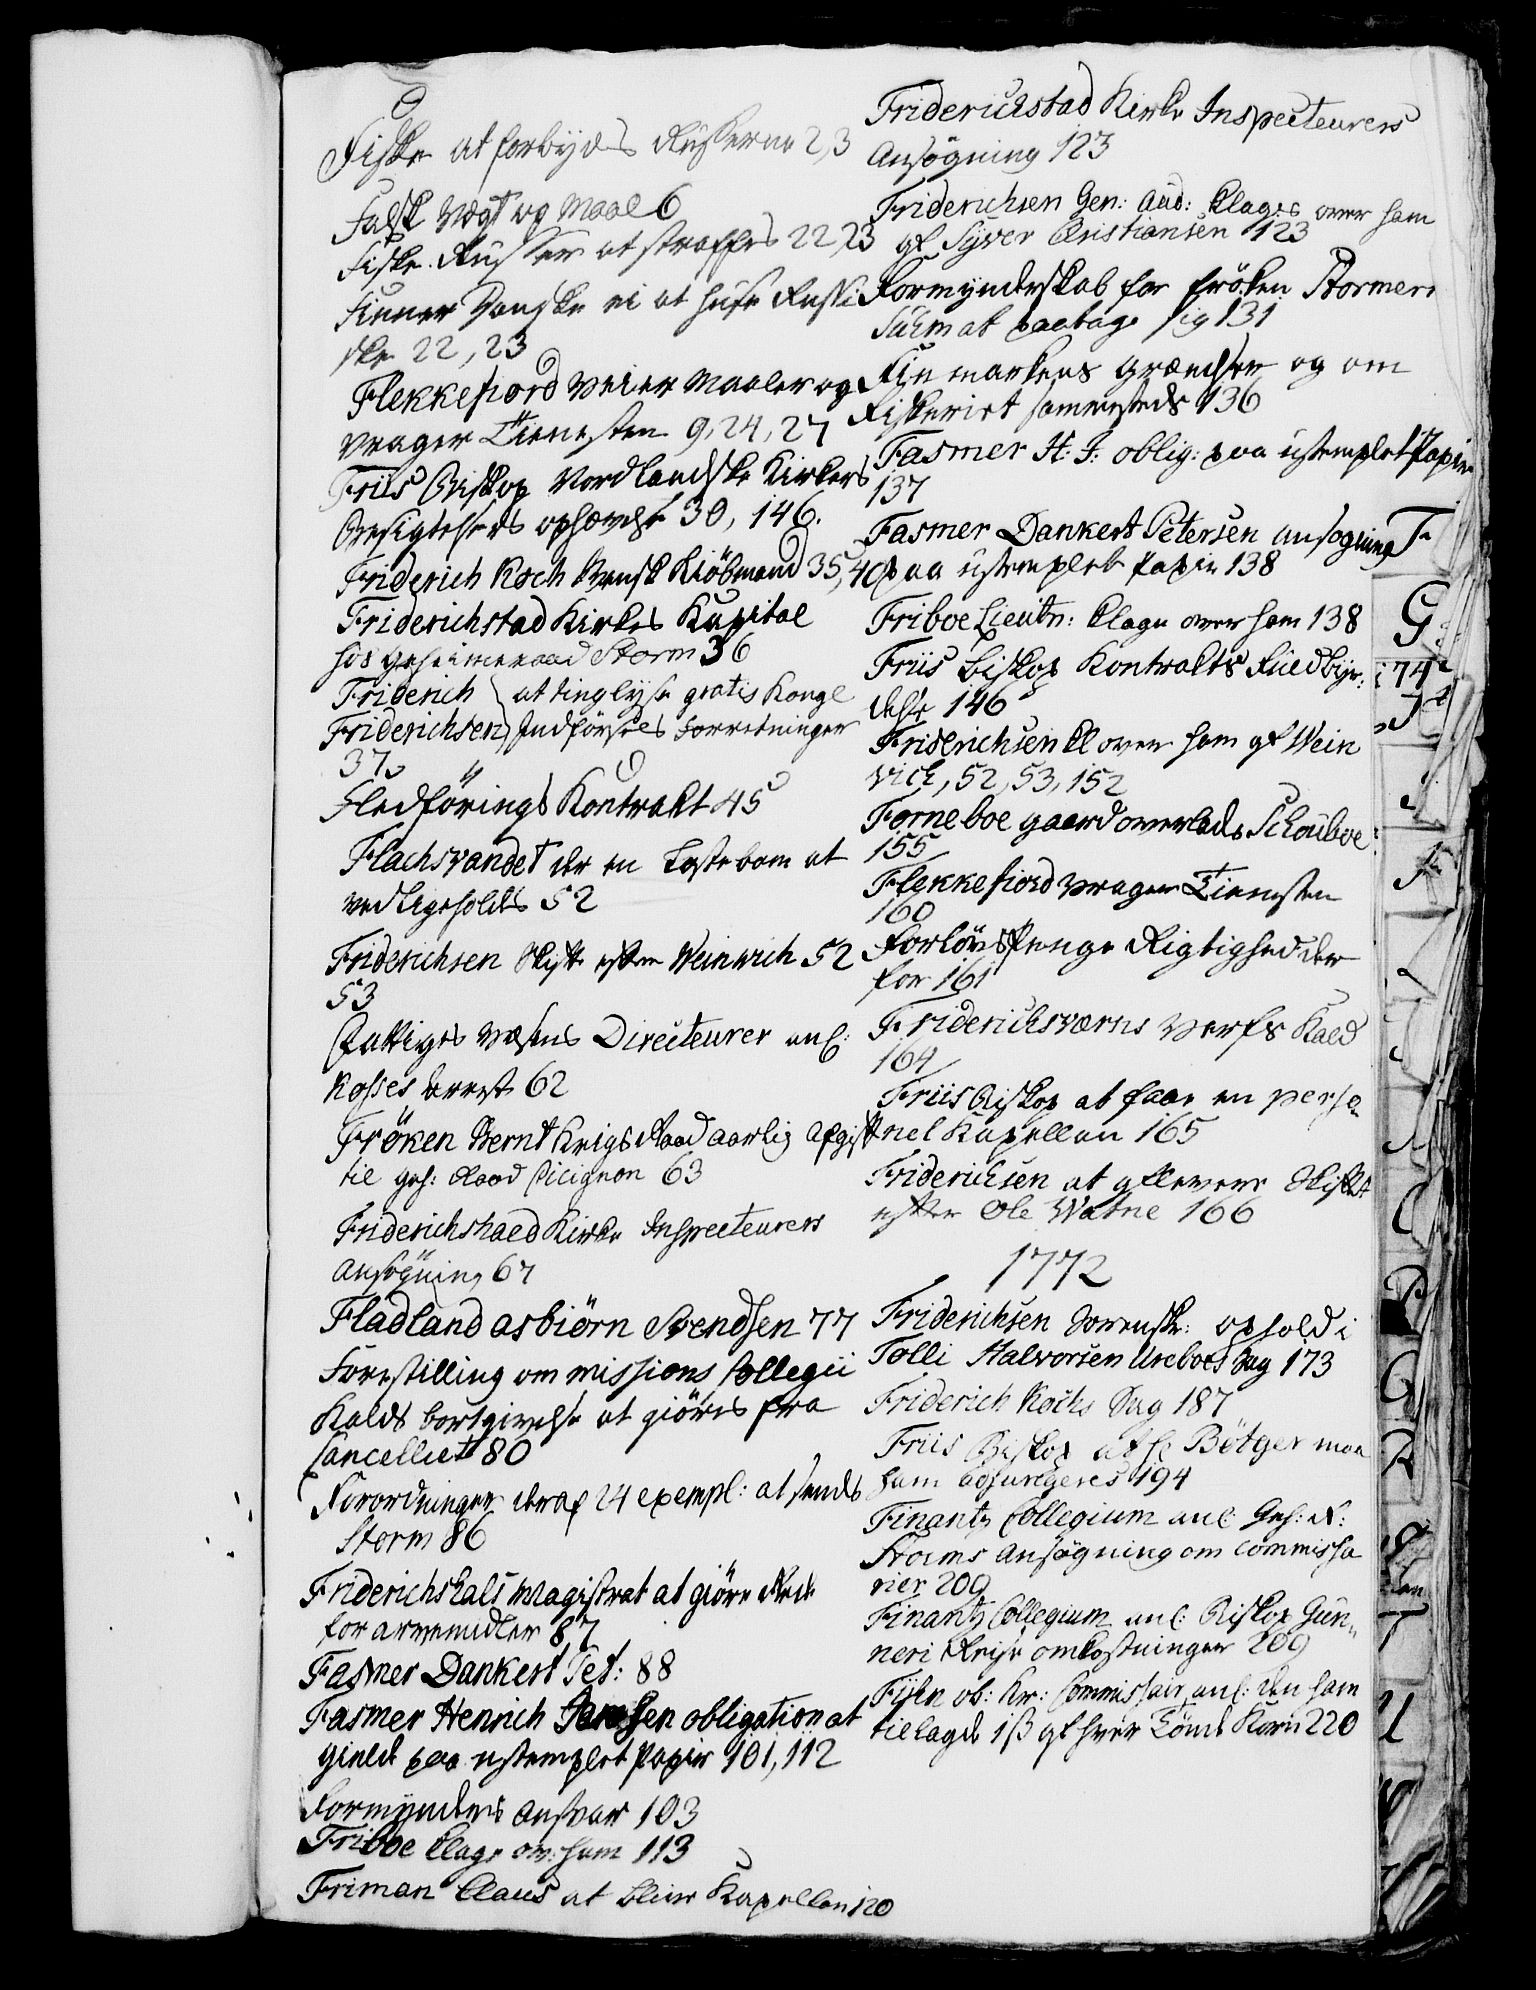 Fiske at forbydes Russerne 2,3
Falsk Vægt og Maal 6
Fiske Russer at straffes 22,23
Finner Danske ei at huse Russi
ske 22, 23
Flekkefiord Veier Maaler og
Vrager Tienesten 9, 24, 27
Friis Biskop Nordlandske Kirkers
Besigtelses ophævelse 30, 146.
Friderich Koch Svensk Kiöbmand 35, 40
Friderichstad Kirkes Kapital
hos Geheimeraad Storm 36
Friderich at tinglyse gratis Kongl
Friderichsen Indförsels Forretninger
37
Fledförings Kontrakt 45
Flachsvandet der en Lostebom at
vedligeholdes 52
Friderichsen Skifte efter Weinwich 52
53
Fattiges Væsens Directeurer anl:
Rosses arrest 62
Fröken Bernt Krigs Raad aarlig Afgift
til Geh: Raad Cicignon 63
Friderichshald Kirke Inspecteurers
Ansögning 67
Fladland Asbiörn Svendsen 77
Forestilling om Missions Collegii
Kalds bortgivelse at giöres fra
Cancelliet 80
Forordninger deraf 24 exempl: at sendes
Storm 86
Friderichshals Magistrat at giöre Rede
for arvemidler 87
Fasmer Dankert Pet: 88
Fasmer Henrich Jansen obligation at
gielde paa ustemplet Papir 101, 112
Formynders Ansvar 103
Friboe Klage ov: ham 113
Friman Claus at blive Kapellan 120
Friderichstad Kirke Inspecteurers
Ansögning 123
Friderichsen Gen: Aud: Klages over ham
af Syver Christiansen 123
Formynderskab for Fröken Störmer
Suhm at paatage sig 131
Finmarkens Grændser og om
Fiskeriet sammesteds 136
Fasmer H: J: oblig: paa ustemplet Papir
137
Fasmer Dankert Petersen Ansögning
paa ustemplet Papir 138
Friboe Lieutn: Klage over ham 138
Friis Biskop Kontrakts Fuldbyr:
delse 146
Friderichsen Kl over ham af Wein
wich, 52, 53, 152
Forneboe gaard overlades Schouboe
155
Flekkefiord Vrager Tienesten
160
Forlövs Penge Rigtighed der
for 161
Friderichsværns Verfs Kald
164
Friis Biskop at faae en perso
nel Kapellan 165
Friderichsen at aflevere Skiftet
efter Ole Watne 166
1772
Friderichsen Sorenskr: ophold i
Tolli Halvorsen Ureboes Sag 173
Friderich Kochs Sag 187
Friis Biskop at Hr Bötger maa
ham adjungeres 194
Finantz Collegium anl: Geh: R:
Storms Ansögning om Commissa
rier 209
Finantz Collegium anl: Biskop Gun
neri Reise omkostninger 209
Fyhn ob: Kr: Commissair anl: den ham
tillagde 1 ß af hver Tönde Korn 220
F
G
T
U